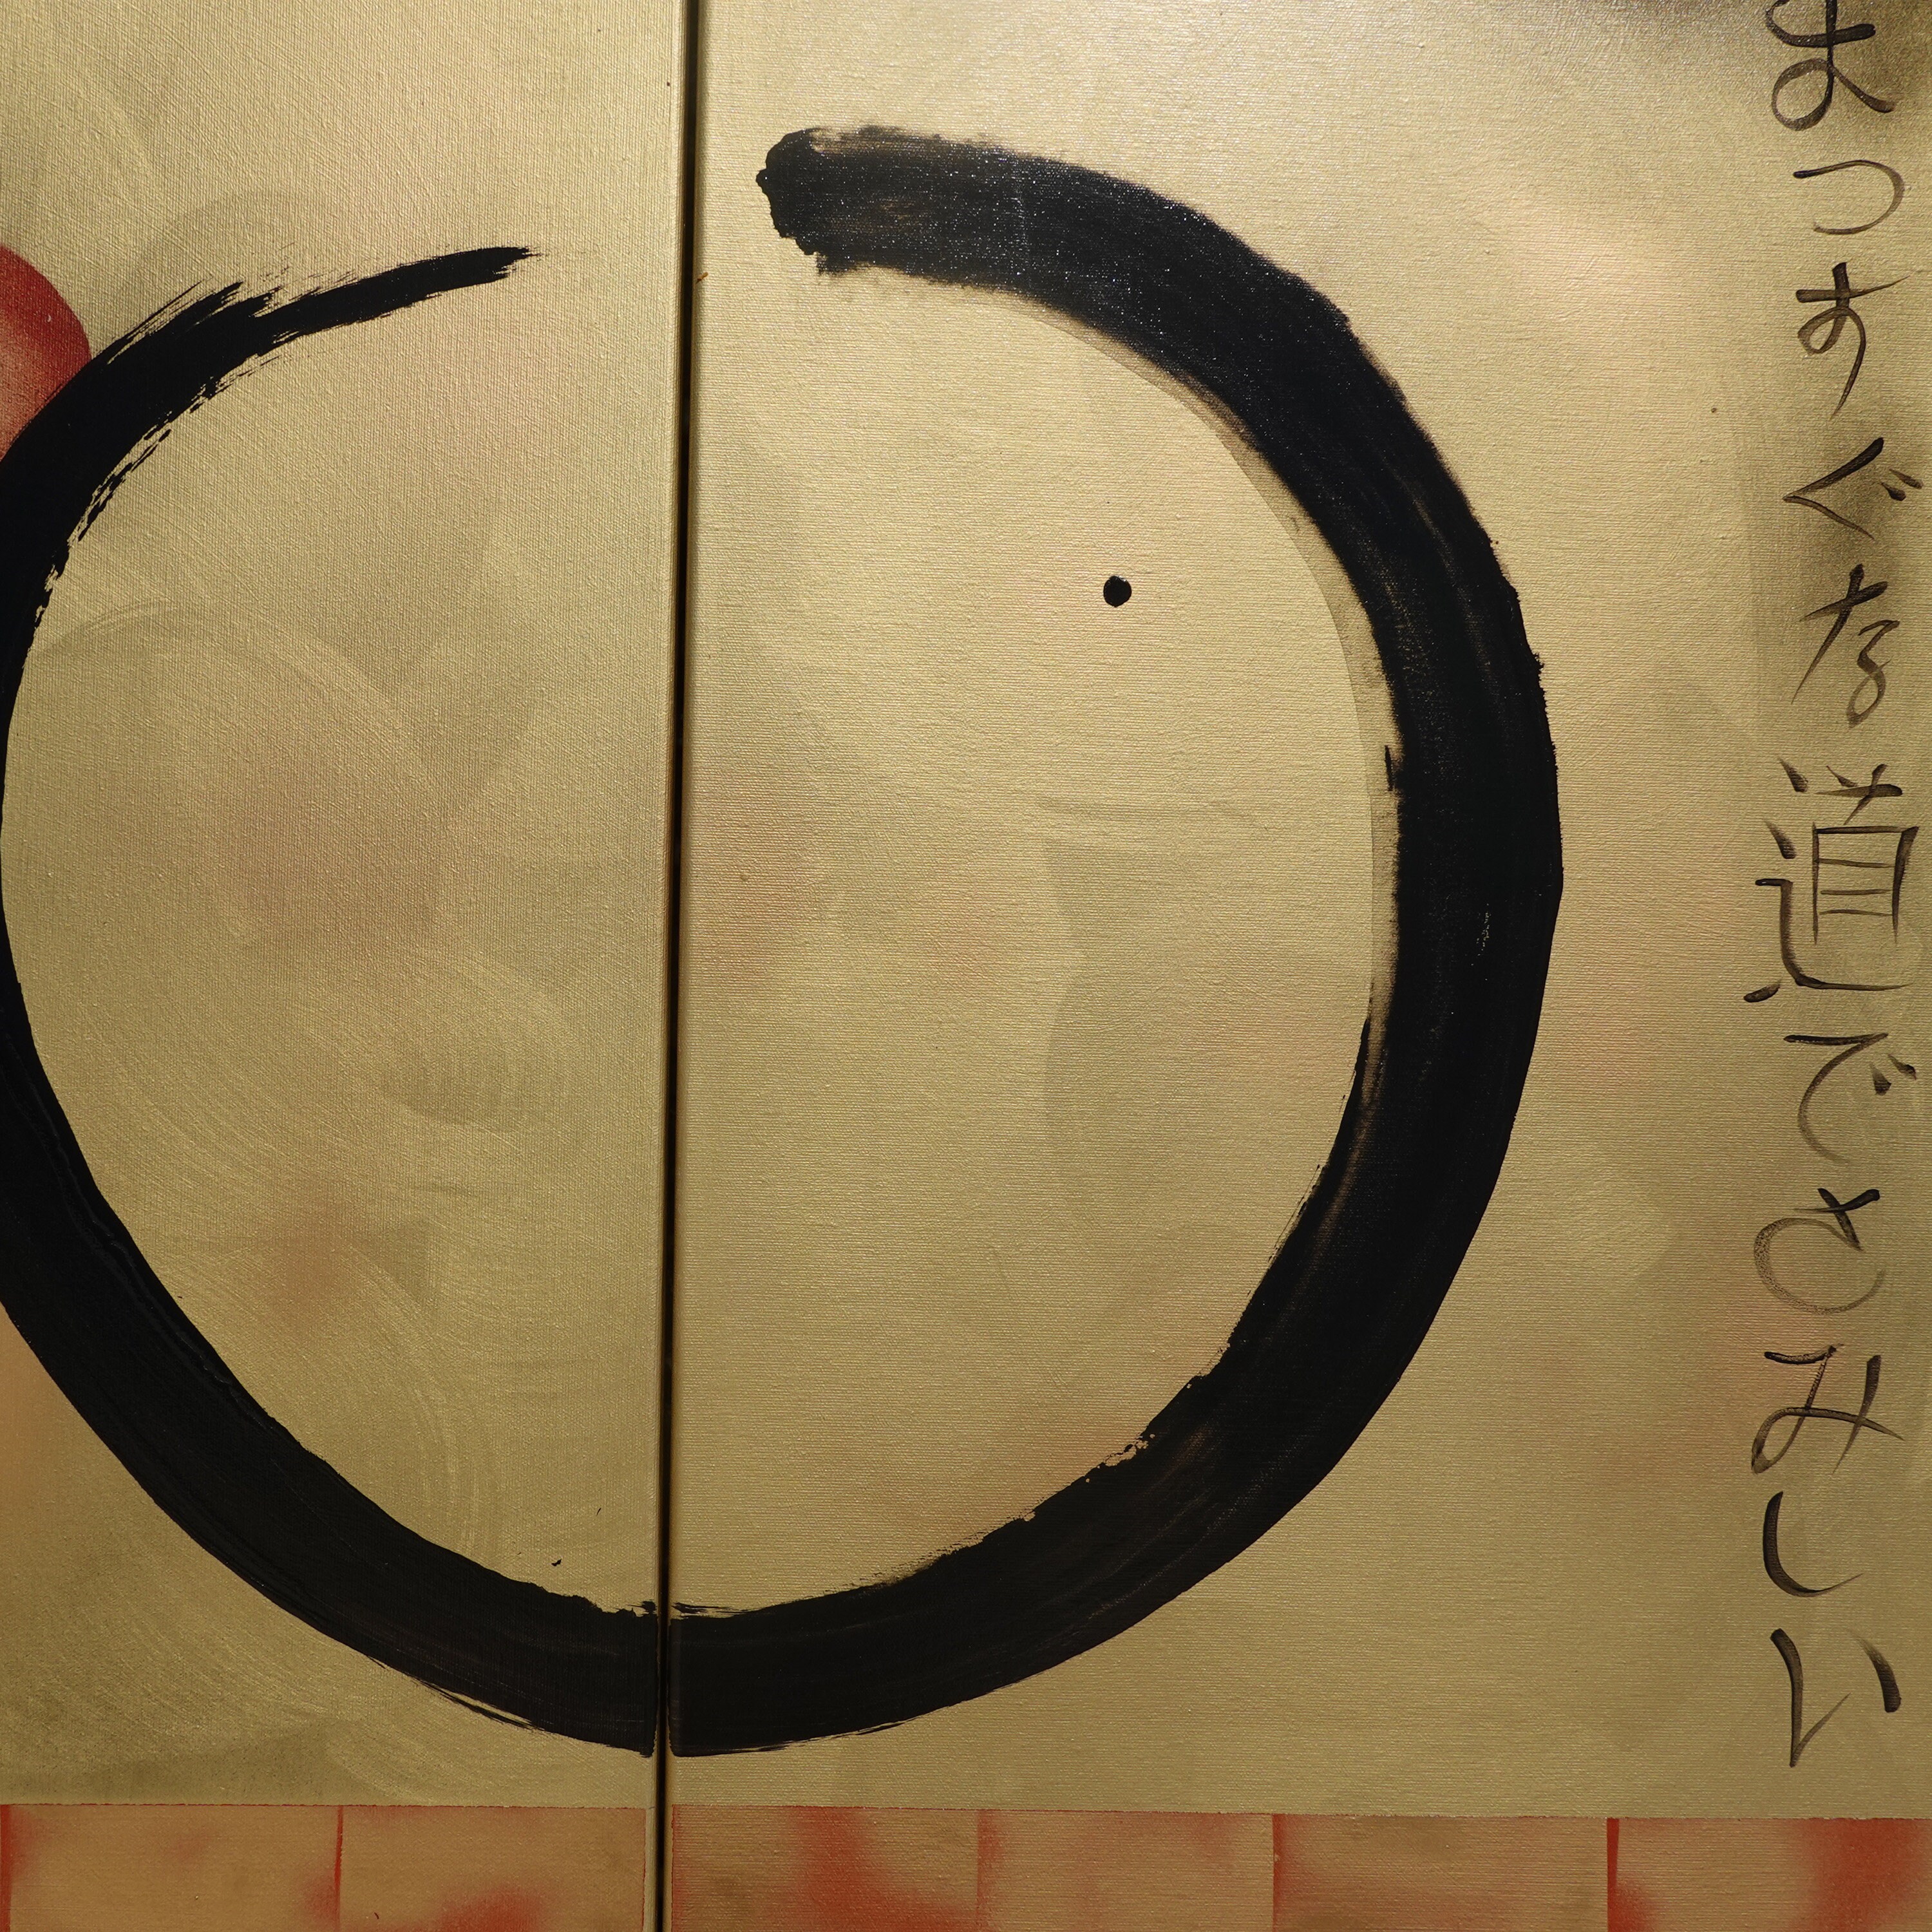 まっすぐな道でさみしい